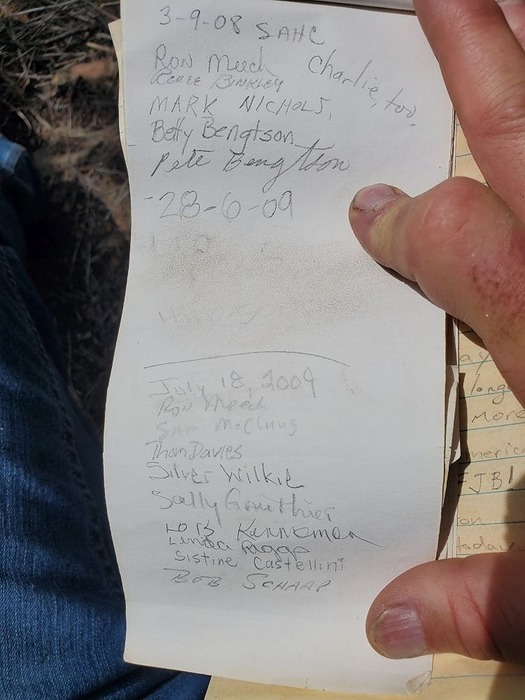 3-9-08 SAHC
Ron Meech Charlie, too.
Renee BINKLEY
MARK NICHOLS,
Betty Bengtson
Pete Bengtson
28-6-09
July 18, 2009
Ron Meech
Sam McClung
Thom Davies
Silver Wilkie
Sally Gauthier
Lois Kunneman
Linda
Sistine Castellini
BOB SCHAAP
long
More
JBL